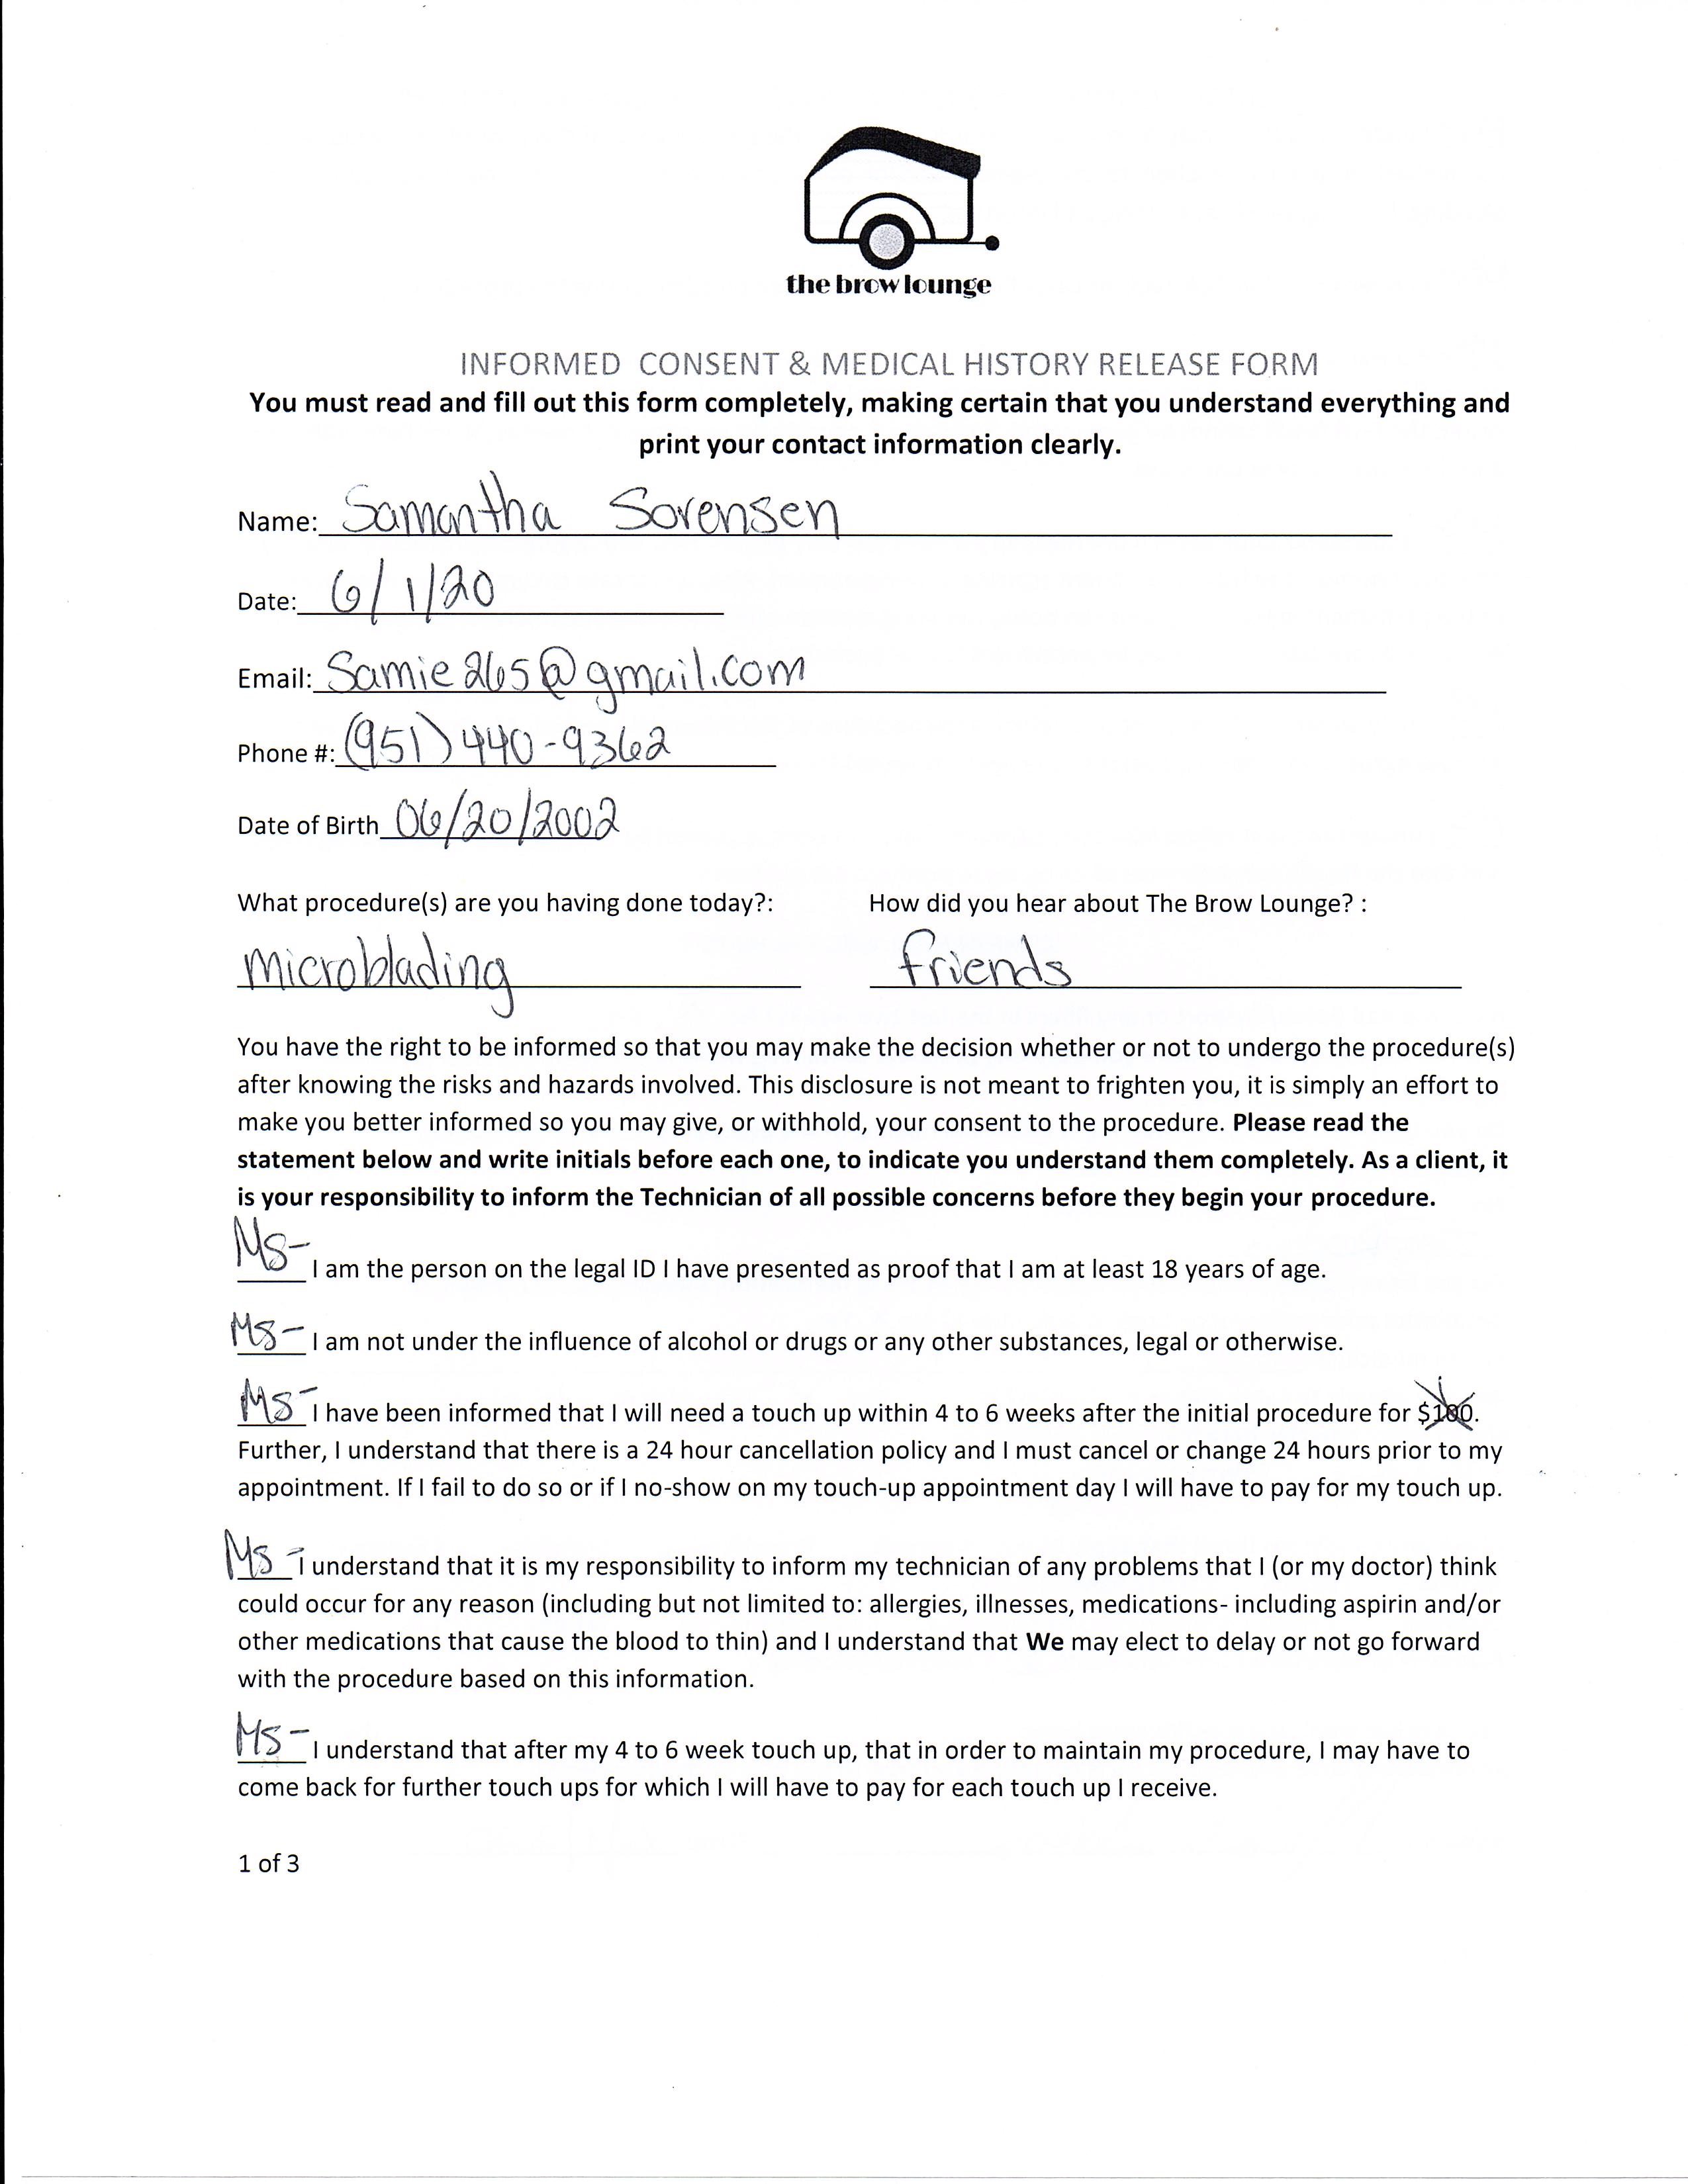 the brow lounge
INFORMED CONSENT & MEDICAL HISTORY RELEASE FORM
You must read and fill out this form completely, making certain that you understand everything and
print your contact information clearly.
Name: Samantha Sorensen
Date: 6/1/20
Email: Samie265@gmail.com
Phone #: (951) 440-9362
Date of Birth 06/20/2002
What procedure(s) are you having done today?: How did you hear about The Brow Lounge? :
microblading friends
You have the right to be informed so that you may make the decision whether or not to undergo the procedure(s)
after knowing the risks and hazards involved. This disclosure is not meant to frighten you, it is simply an effort to
make you better informed so you may give, or withhold, your consent to the procedure. Please read the
statement below and write initials before each one, to indicate you understand them completely. As a client, it
is your responsibility to inform the Technician of all possible concerns before they begin your procedure.
MS- I am the person on the legal ID I have presented as proof that I am at least 18 years of age.
MS- I am not under the influence of alcohol or drugs or any other substances, legal or otherwise.
MS- I have been informed that I will need a touch up within 4 to 6 weeks after the initial procedure for $100.
Further, I understand that there is a 24 hour cancellation policy and I must cancel or change 24 hours prior to my
appointment. If I fail to do so or if I no-show on my touch-up appointment day I will have to pay for my touch up.
MS- I understand that it is my responsibility to inform my technician of any problems that I (or my doctor) think
could occur for any reason (including but not limited to: allergies, illnesses, medications- including aspirin and/or
other medications that cause the blood to thin) and I understand that We may elect to delay or not go forward
with the procedure based on this information.
MS- I understand that after my 4 to 6 week touch up, that in order to maintain my procedure, I may have to
come back for further touch ups for which I will have to pay for each touch up I receive.
1 of 3